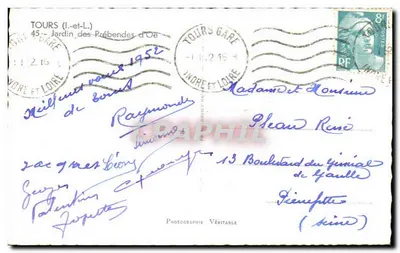 TOURS (I.-et-L.)
45 - Jardin des Prébendes d'Oé
TOURS GARE
INDRE ET LOIRE
TOURS GARE
INDRE ET LOIRE
8F
RF
Meilleurs vœux 1952
de Tours
Raymonde
Jacques Léon
Georges
Valentine
Josette
Madame et Monsieur
René
13 Boulevard du Général
de Gaulle
Pierrefitte
(Seine)
PHOTOGRAPHIE VÉRITABLE